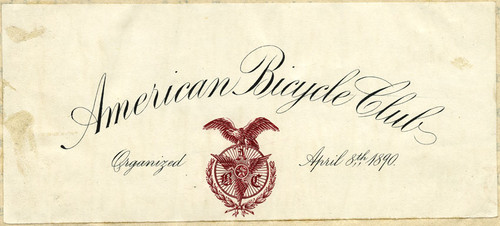 American Bicycle Club
Organized April 8th, 1890.
A
B C